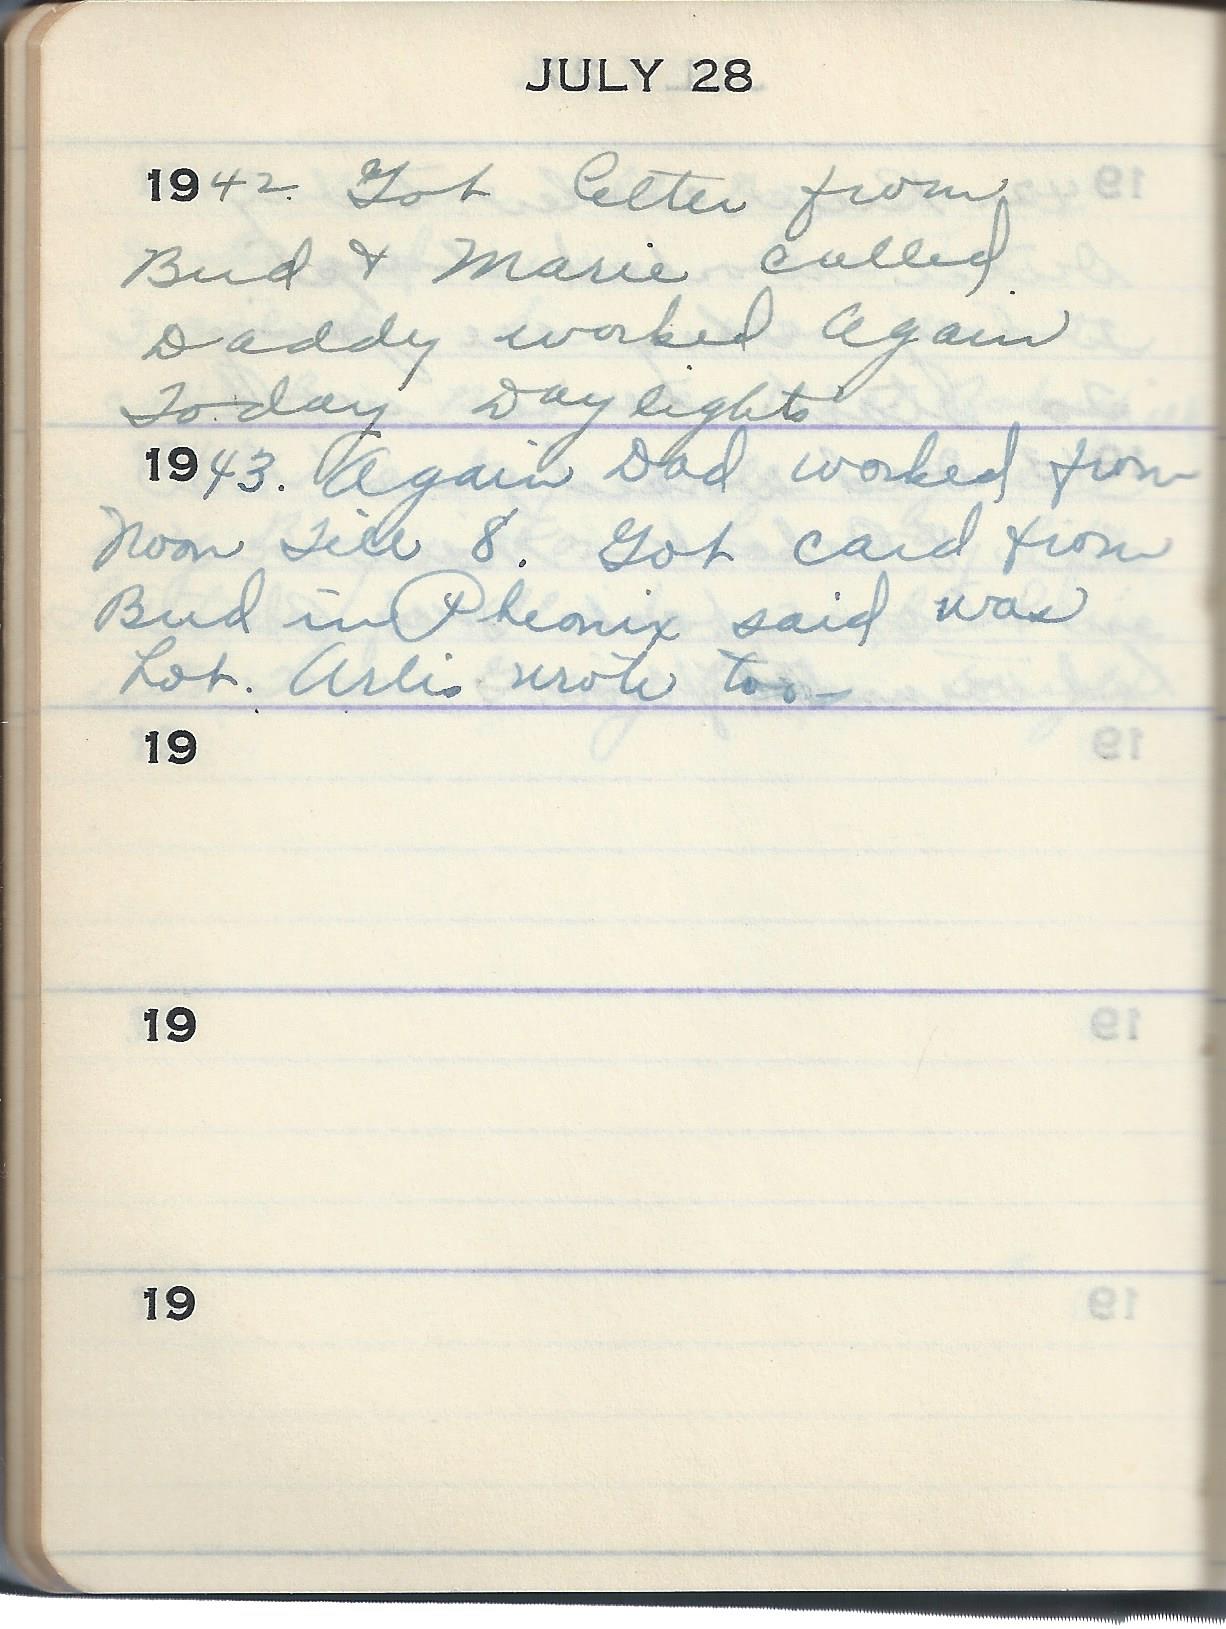 JULY 28
1942. Got letter from
Bud & Marie called.
Daddy worked Again
Today Daylights
1943. Again Dad worked from
Noon Till 8. Got card from
Bud in Pheonix said was
hot. Arlis wrote too-
19
19
19